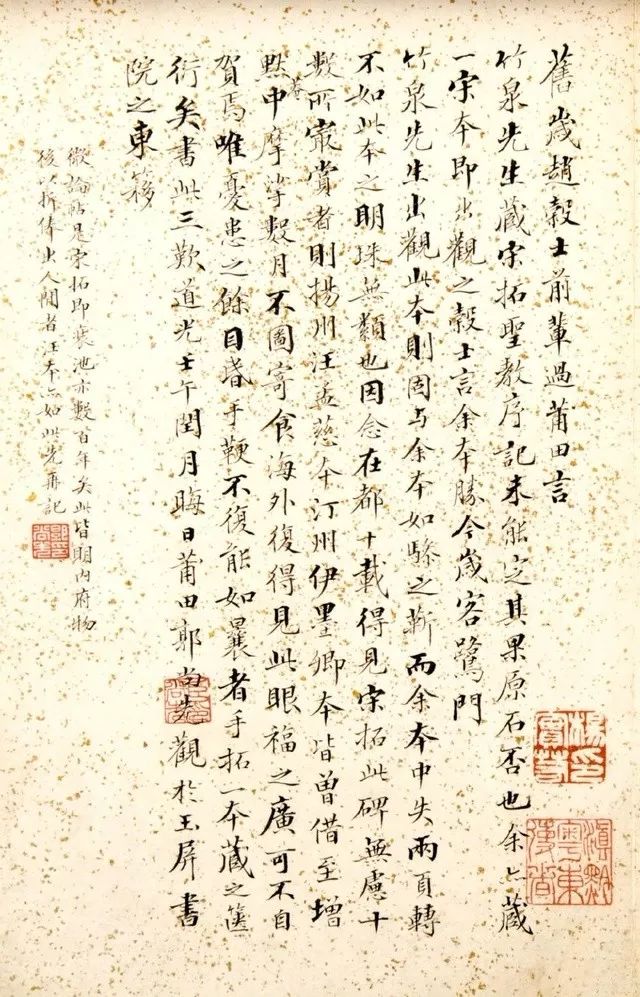 舊歲趙穀士前輩過莆田言
竹泉先生藏宋拓聖教序記未能定其果原石否也余亦藏
一宋本即出觀之穀士言余本勝今歲客鷺門
竹泉先生出觀此本則固与余本如驂之靳而余本中失兩頁轉
不如此本之明珠無纇也因念在都十載得見宋拓此碑無慮十
數所最賞者則揚州汪孟慈本汀州伊墨卿本皆曾借至增
默庵中摩挲數月不圖寄食海外復得見此眼福之廣可不自
賀焉唯憂患之餘目眵手鞕不復能如曩者手拓一本藏之篋
衍矣書此三歎道光壬午閏月晦日莆田郭尚先觀於玉屏書
院之東簃
徵論帖是宋拓即裹池亦數百年矣此皆明內府物
後以折俸出人間者汪本亦如此先再記